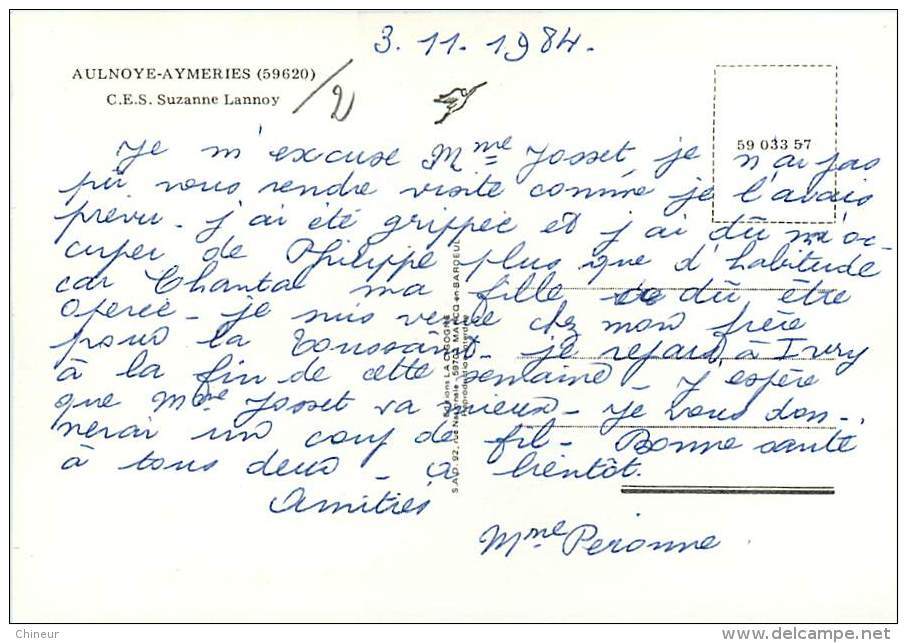 3.11.1984.
AULNOYE-AYMERIES (59620)
C.E.S. Suzanne Lannoy
/2
59 033 57
Je m'excuse Mme Josset, je n'ai pas
pû vous rendre visite comme je l'avais
prévu - j'ai été grippée et j'ai dû m'oc-
cuper de Philippe plus que d'habitude
car Chantal ma fille a dû être
opérée - je suis venue chez mon frère
pour la Toussaint - je repars à Ivry
à la fin de cette semaine - J'espère
que Mme Josset va mieux - Je vous don-
nerai un coup de fil - Bonne santé
à tous deux - à bientôt.
Amitiés
Mme Peronne
Editions LA CIGOGNE
S.A.D. 92, rue Nationale - 59700 MARCQ-en-BAROEUL
Reproduction interdite
Chineur
www.delcampe.net